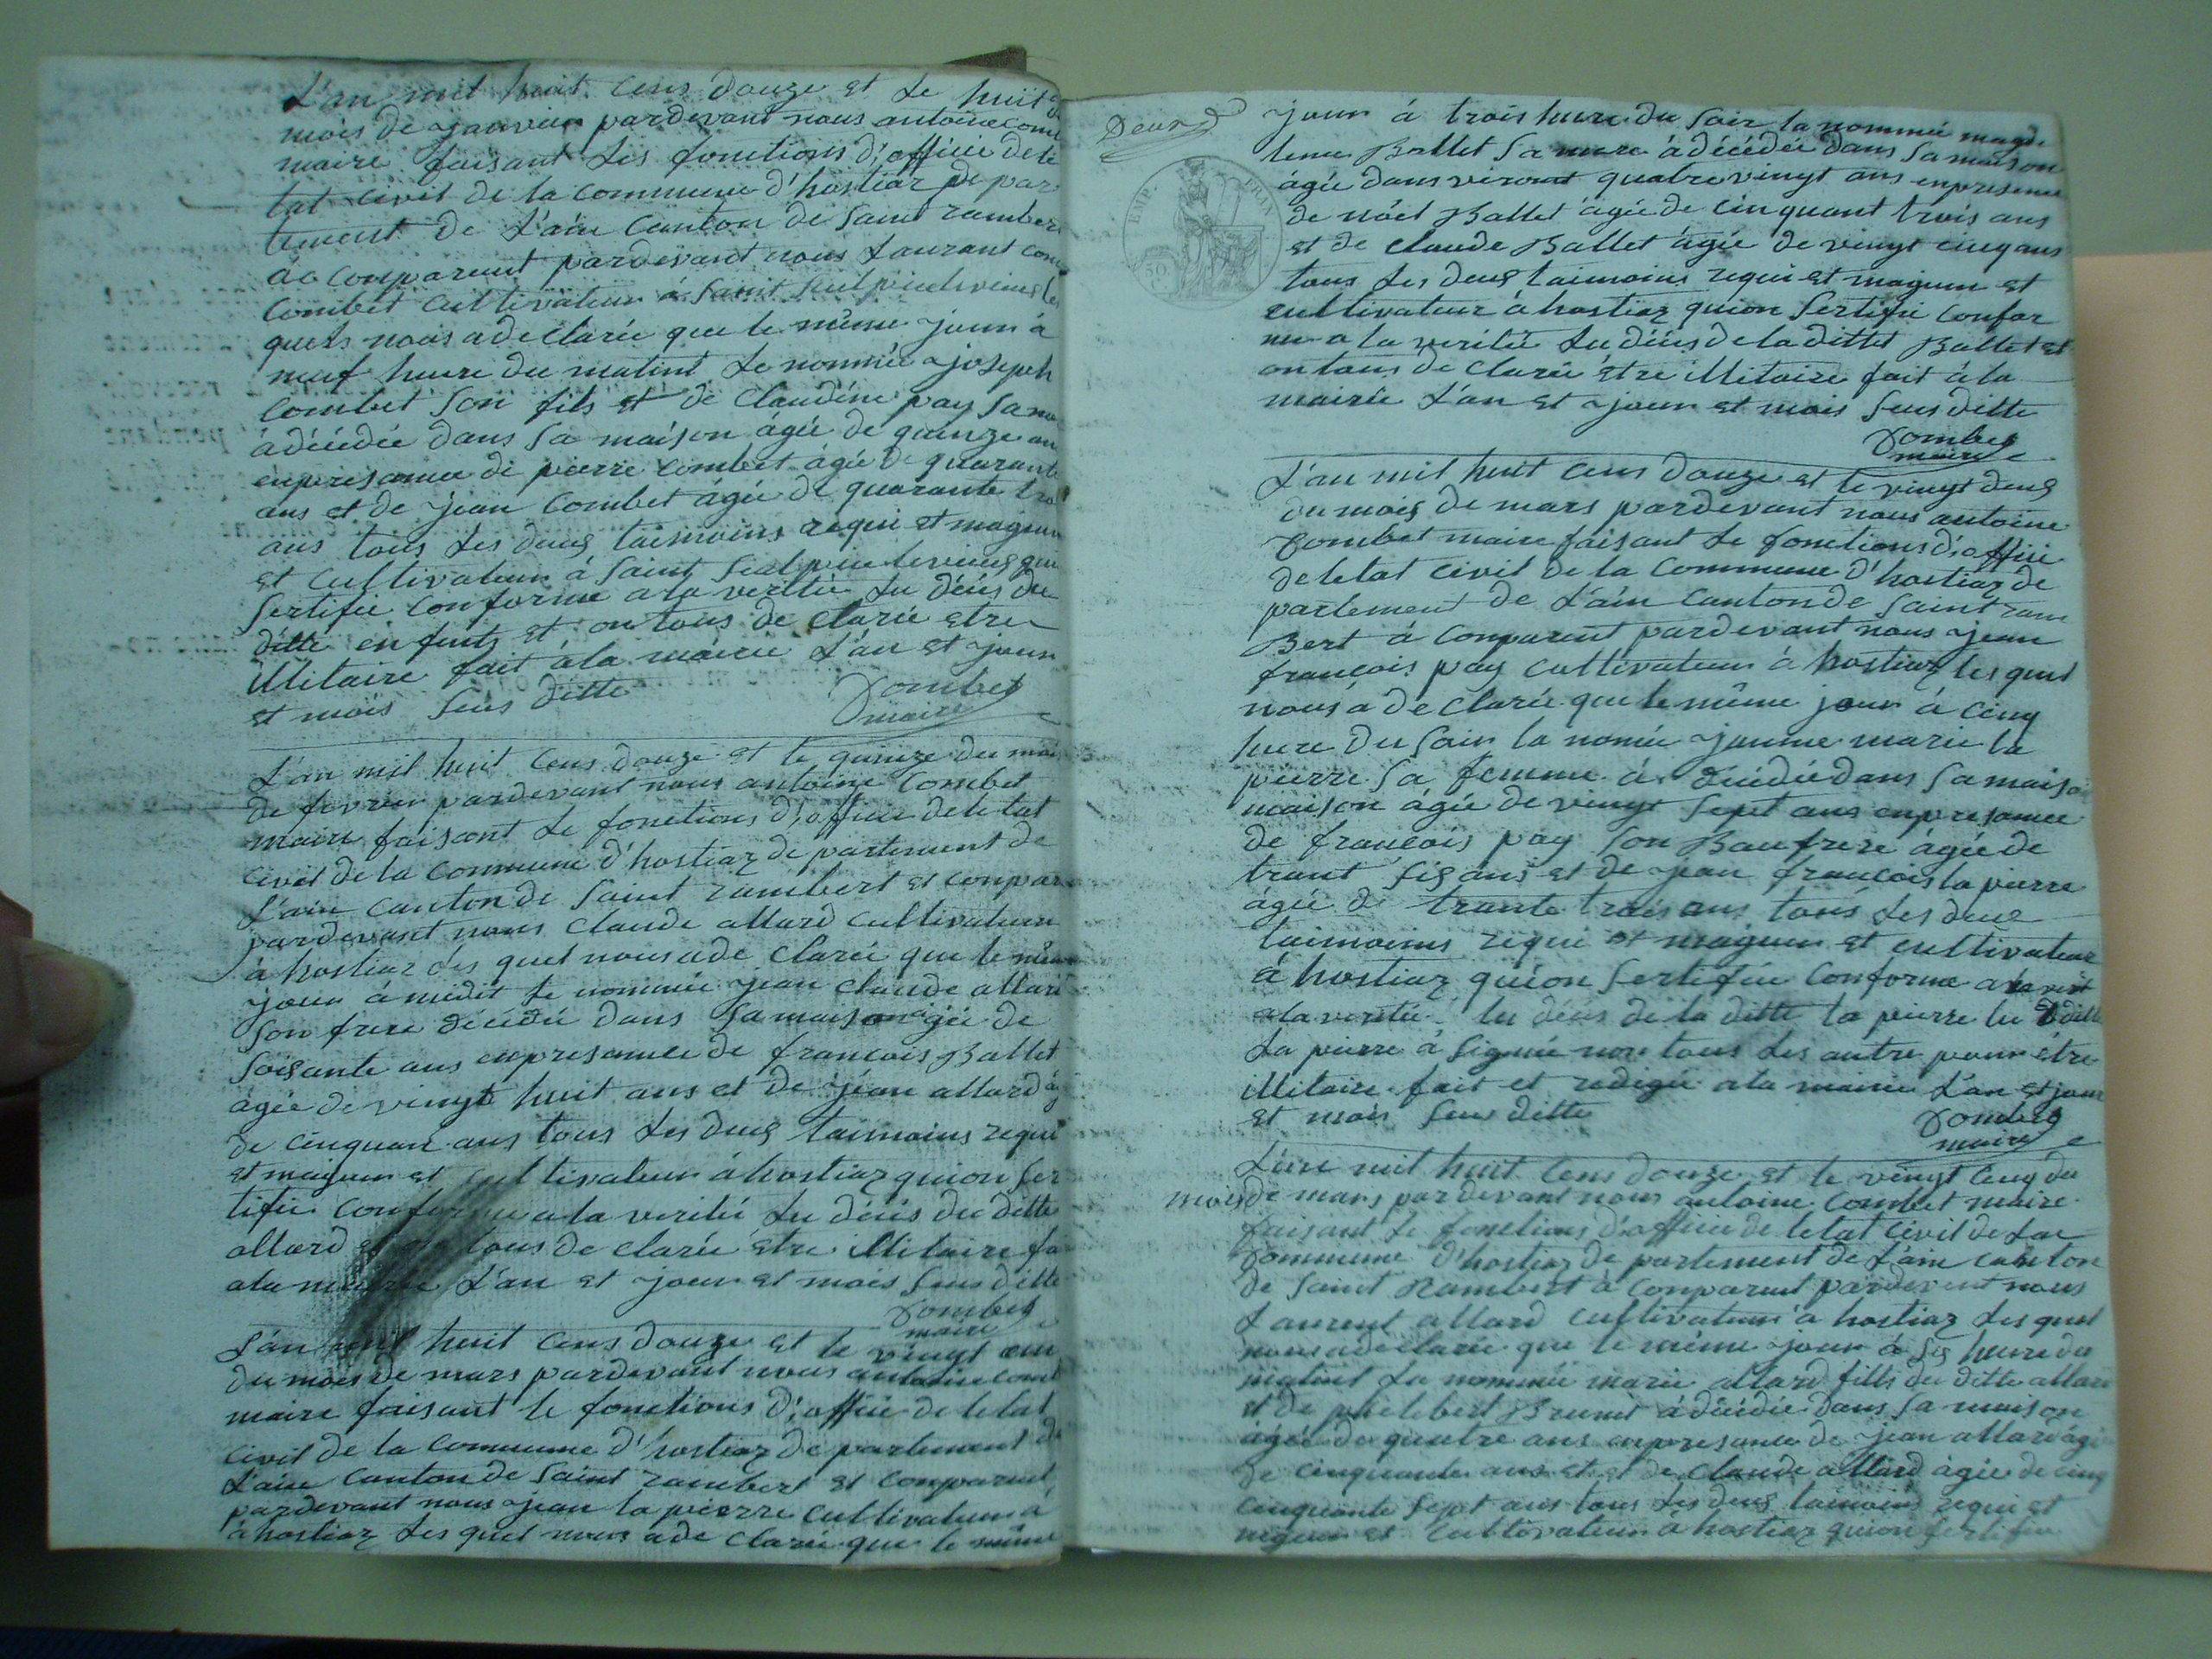 L'an mil huit cens douze et le huit
mois de janvier pardevant nous antoine com
maire faisant les fonctions d'officie de le
tat civil de la commune d'hostiaz de par
tement de L'ain canton de saint ramber
àa comparent pardevant nous Laurant com
Combet cultivateur à saint
quels nous a de clarée que le même jour à
neuf heure du matint le nommée joseph
Combet son fils et de Claudine pay sa
à décédée dans sa maison âgée de quinze an
enpresance de pierre combet âgée de quarante
ans et de jean Combet âgée de quarante tro
ans tous les deus taimoins requi et mageur
et cultivateur à saint
sertifie conforme a la veritée du décès du
ditte enfents et on tous de clarée etre
illitaire fait à la mairie L'an et jour
et mois sus ditte
Combet
maire
L'an mil huit cens douze et le quinze du moi
de fevrier pardevant nous antoine Combet
maire faisant le fonctions d'officie de letat
civil de la commune d'hostiaz de partement de
L'ain canton de saint rambert et conpar
pardevant nous claude allard cultivateur
à hostiaz les quel nous a de clarée que le mem
jour à midit le nommée jean claude allard
son frere décédé dans sa maison agée de
soisante ans enpresance de francois Ballet
agée de vingt huit ans et de jean allard ag
de cinquan ans tous les deus taimoins requi
et mageur et cultivateur à hostiaz quion ser
tifie conforme a la veritée du décès du ditte
allard et on tous de clarée etre illitaire fa
a la mairie L'an et jour et mois sus ditte
Combet
maire
L'an mil huit cens douze et le vingt
du mois de mars pardevant nous antoine comb
maire faisant le fonctions d'officie de letat
civil de la commune d'hostiaz de partement de
L'ain canton de saint rambert et comparent
pardevant nous jean la pierre cultivateur à
a hostiaz les quel nous a de clarée que le même
Deux
jour à trois heure du soir la nommée magde
lenne Ballet sa mere à décédée dans sa maison
âgée dans viront quatre vingt ans enpresence
de noël Ballet âgée de cinquant trois ans
et de claude Ballet âgée de vingt cinq ans
tous les deus taimoins requi et mageur et
cultivateur à hostiaz quion sertifié confor
me a la veritée du décès de la dittet Ballet et
on tous de clarée être illitaire fait à la
mairie L'an et jour et mois sus ditte
Combet
maire
L'an mil huit cens douze et le vingt deus
du mois de mars pardevant nous antoine
Combet maire faisant le fonctions d'officie
de letat civil de la commune d'hostiaz de
partement de L'ain canton de saint ram
Bert à comparent pardevant nous jean
françois pay cultivateur à hostiaz les quel
nous à de clarée que le même jour à cinq
heure du soir la nomée jeanne marie la
pierre sa femme à décédée dans sa maiso
maison âgée de vingt sept ans enpresance
de francois pay son Baufrere âgée de
trant sis ans et de jean francois la pierre
âgée de trante trois ans tous les deus
taimoins requi et mageur et cultivateur
à hostiaz quion sertifie conforme a la verit
a la veritée le décès de la ditte la pierre le ditte
La pierre à signée non tous les autre pour etre
illitaire fait et redigée a la mairie L'an et jour
et mois sus ditte
Combet
maire
L'an mil huit cens douze et le vingt cinq du
mois de mars pardevant nous antoine Combet maire
faisant le fonctions d'officie de letat civil de la
Commune d'hostiaz de partement de L'ain canton
de saint Rambert à comparent pardevent nous
Laurent allard cultivateur à hostiaz les quel
nous a de clarée que le même jour à sis heure du
matint la nommée marie allard fille du ditte allard
et de phelebert Brunet à décédée dans sa maison
âgée de quatre ans enpresance de jean allard âgé
de cinquante ans et et de claude allard âgée de cinq
cinquante sept ans tous les deus taimoins requi et
mageur et cultivateur à hostiaz quion sertifie